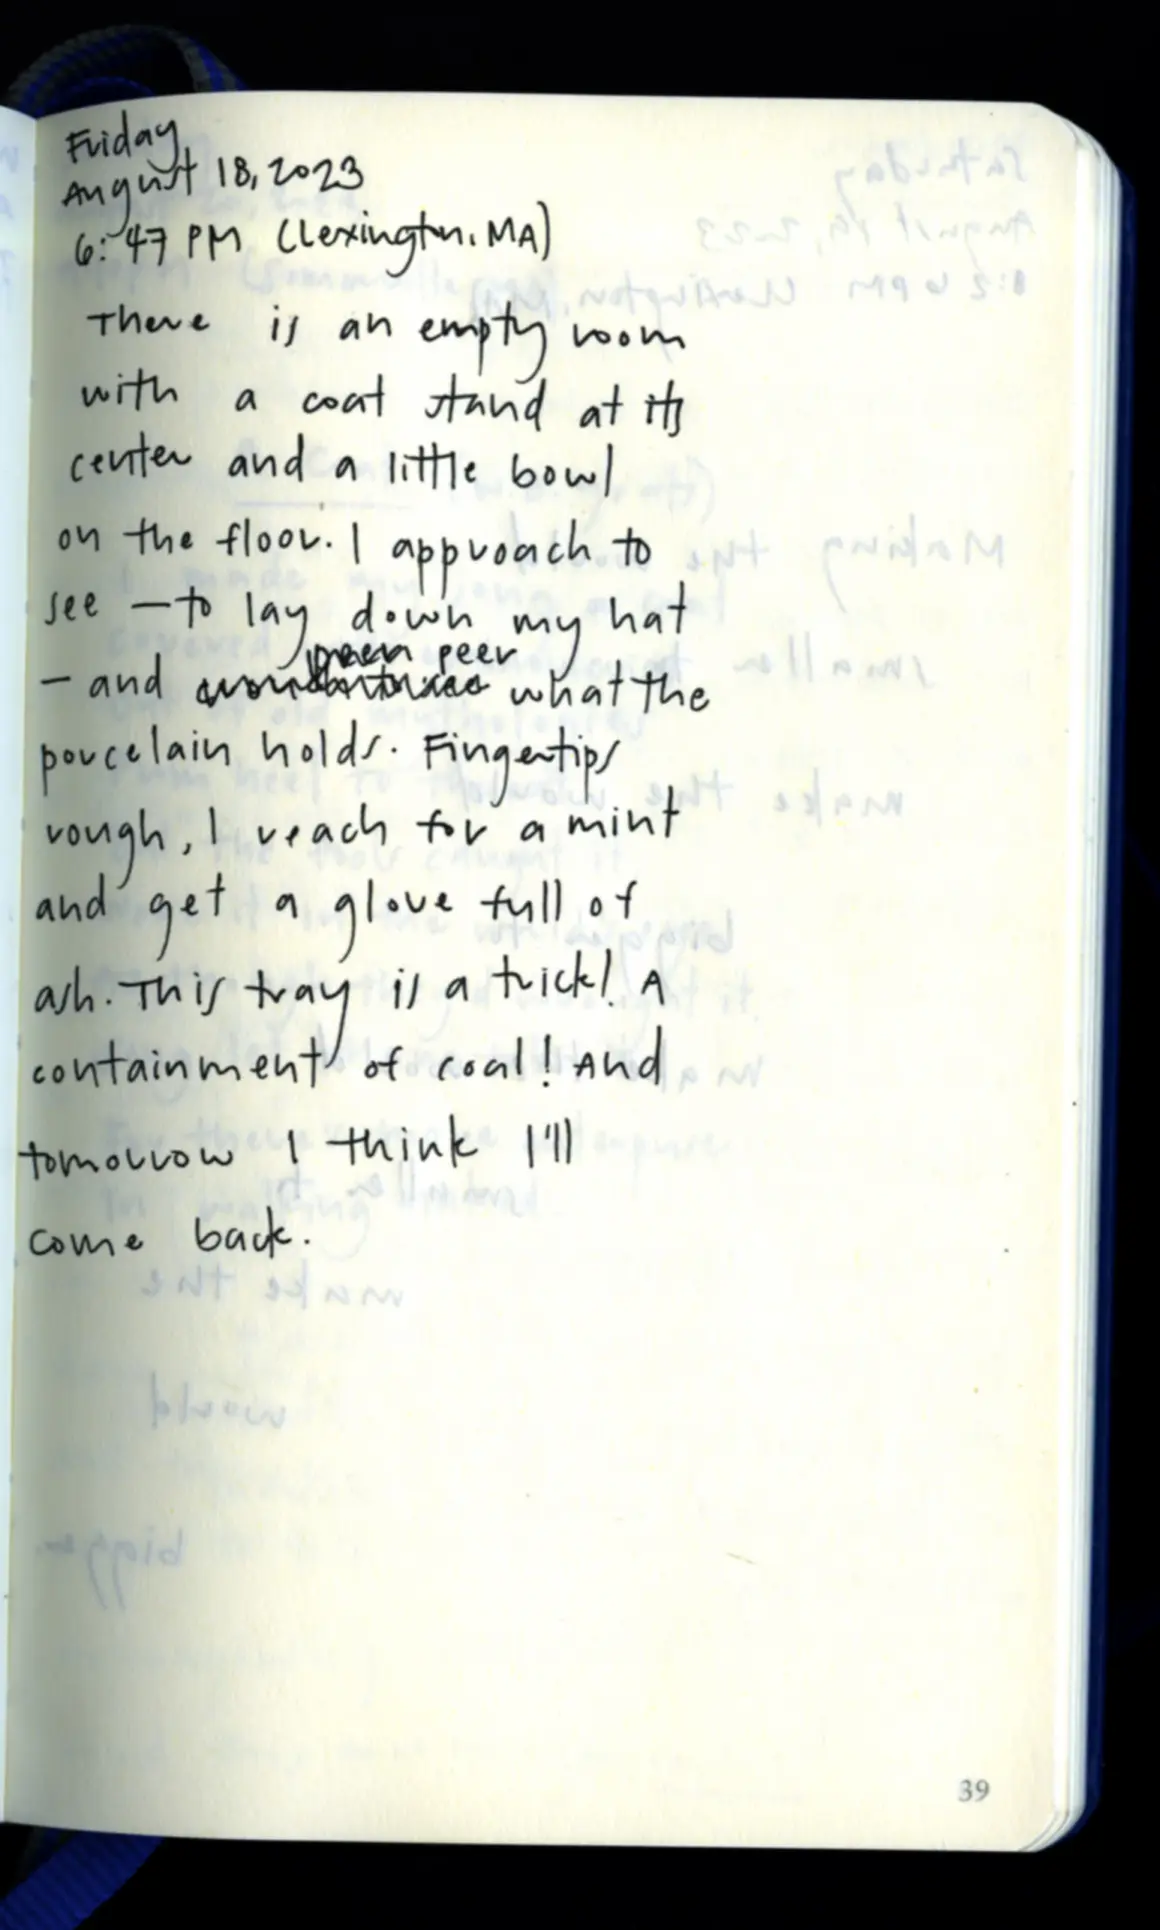 Friday
August 18, 2023
6:47 PM (Lexington, MA)
There is an empty room
with a coat stand at its
center and a little bowl
on the floor. I approach to
see — to lay down my hat
peer
— and what the
porcelain holds. Fingertips
rough, I reach for a mint
and get a glove full of
ash. This tray is a trick! A
containment of coal! And
tomorrow I think I'll
come back.
39